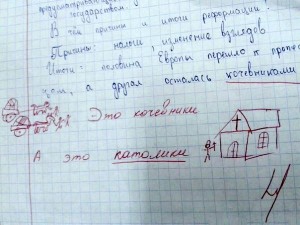 предусматривающее
государством.
В чём причины и итоги реформации?
Причины: налоги, изменение взглядов
Итоги: половина Европы перешло к протес-
там, а другая осталась кочевниками
Это кочевники
А это католики
4